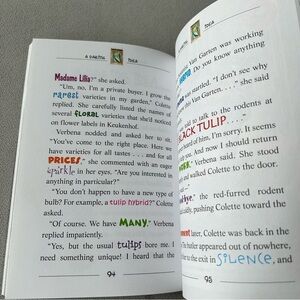 A GARDEN
Madame Lillia?" she asked.
"Um, no. I'm a private buyer. I grow the
rarest varieties in my garden," Colette
replied. She carefully listed the names of
several floral varieties that she'd noticed
on flower labels in Keukenhof.
Verbena nodded and asked her to sit.
"You've come to the right place. Here we
have varieties for all tastes . . . and for all
PRICES," she commented with an empty
sparkle in her eyes. "Are you interested in
anything in particular?"
"You don't happen to have a new type of
bulb? For example, a tulip hybrid?" Colette
asked.
"Of course. We have MANY," Verbena
replied impatiently.
"Yes, but the usual tulips bore me. I
need something unique! I heard that the
94
Van Garten was working
Do you know anything
startled. "I don't see why
this Van Garten . . ." she said
told to talk to the rodents at
BLACK TULIP . . ."
heard of him. I'm sorry. It seems
now," Verbena said. She stood
and walked Colette to the door.
the red-furred rodent
pushing Colette toward the
later, Colette was back in the
The butler appeared out of nowhere,
to the exit in SILENCE, and
95